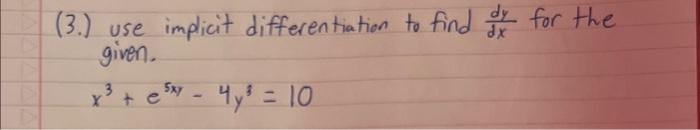 (3.) use implicit differentiation to find dy/dx for the
given.
x³ + e^5xy - 4y³ = 10